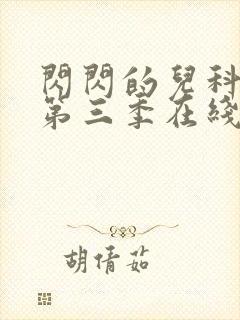 閃閃的兒科
第三季在綫
胡倩茹